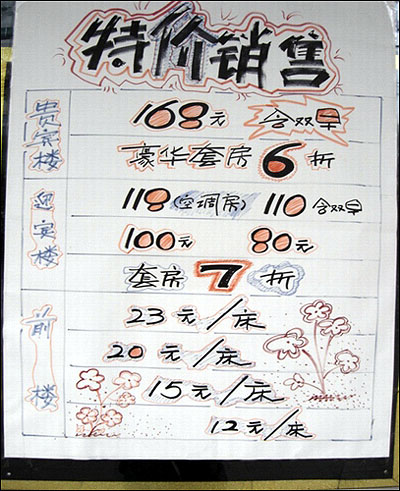 特价销售
贵宾楼
168元 含双早
豪华套房 6 折
迎宾楼
118(空调房) 110 含双早
100元 80元
套房 7 折
前楼
23元/床
20元/床
15元/床
12元/床